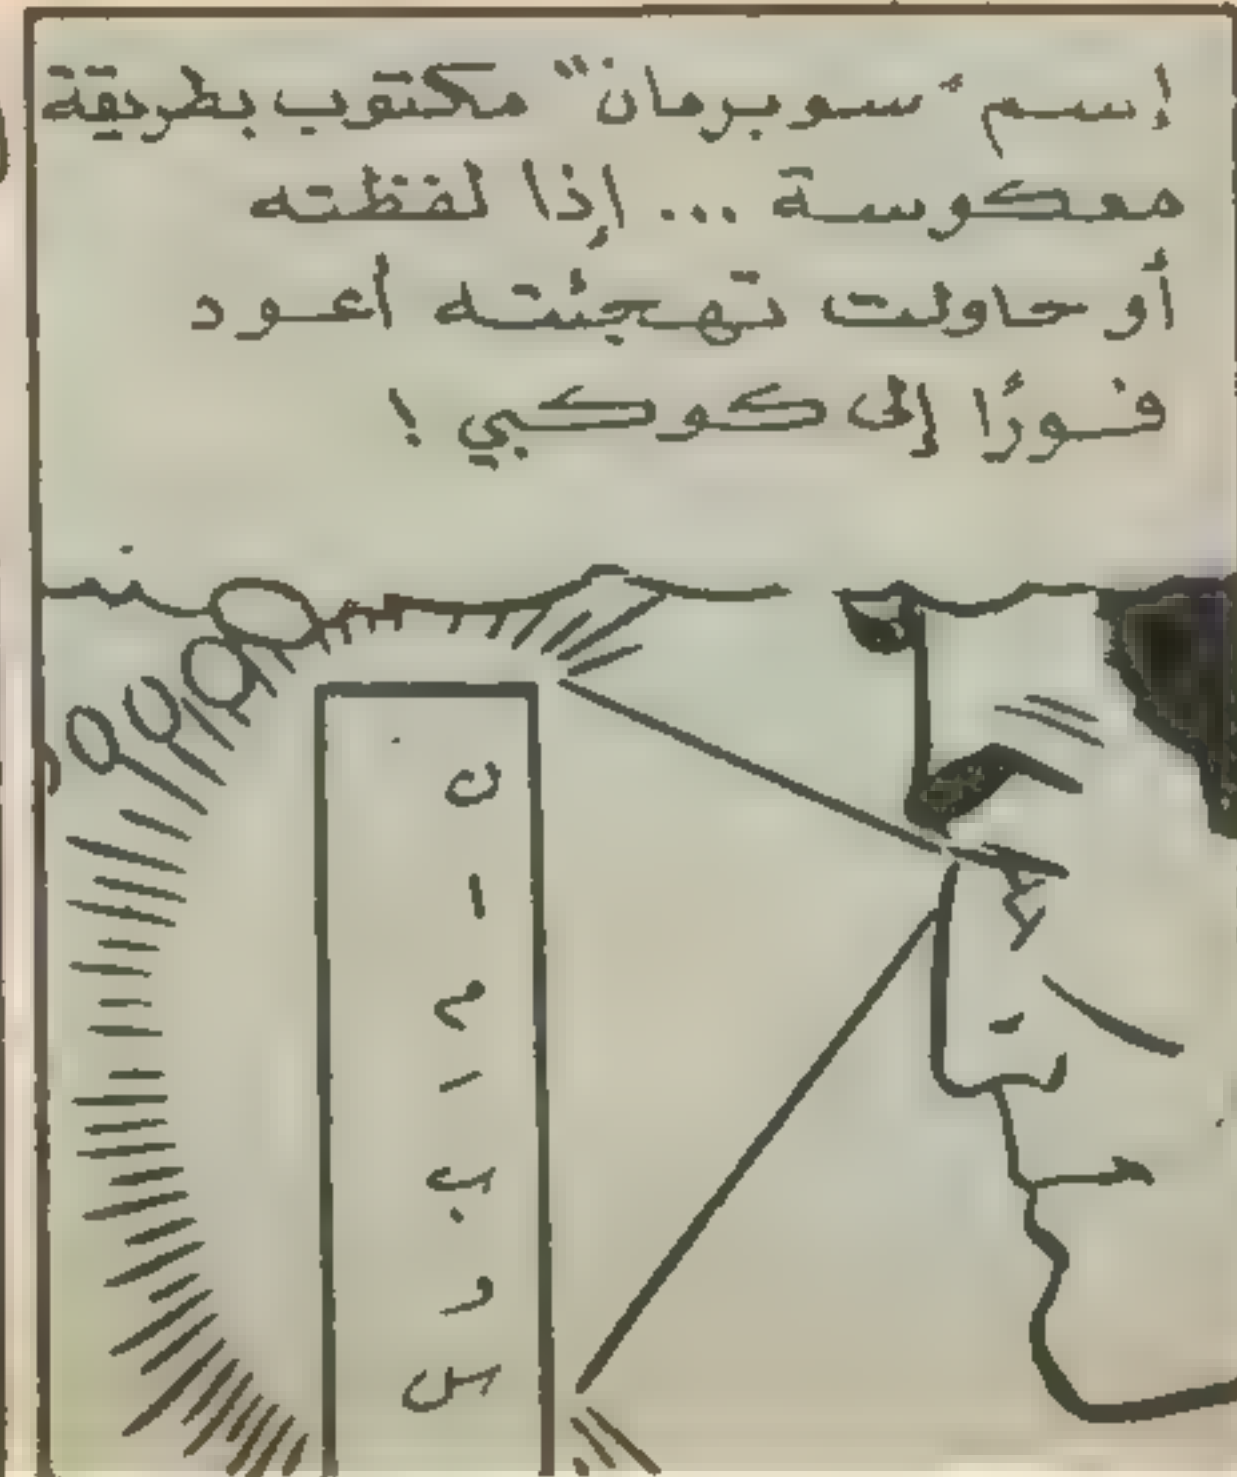 إسم "سوبرمان" مكتوب بطريقة
معكوسة ... إذا لفظته
أو حاولت تهجئته أعود
فورًا إلى كوكبي !
ن
ا
م
ر
ب
و
س